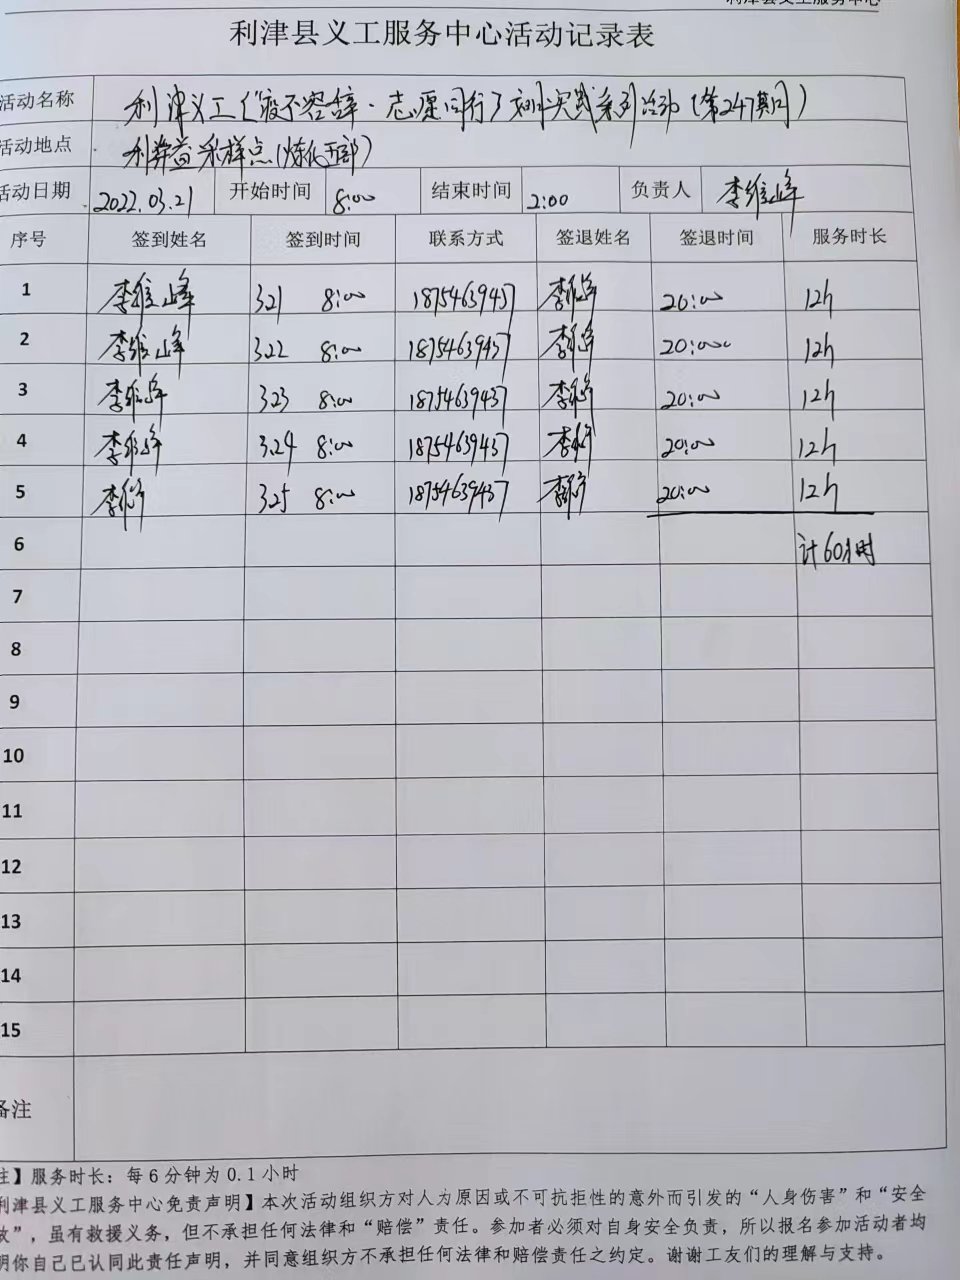 利津县义工服务中心
利津县义工服务中心活动记录表
活动名称 利津义工《疫不容辞·志愿同行》文明实践系列活动(第247期)
活动地点 利 采样点
活动日期 2022.03.21 开始时间 8:00 结束时间 2:00 负责人 李维峰
序号 签到姓名 签到时间 联系方式 签退姓名 签退时间 服务时长
1 李维峰 3.21 8:00 18754639437 李维峰 20:00 12h
2 李维峰 3.22 8:00 18754639437 李维峰 20:00 12h
3 李维峰 3.23 8:00 18754639437 李维峰 20:00 12h
4 李维峰 3.24 8:00 18754639437 李维峰 20:00 12h
5 李维峰 3.25 8:00 18754639437 李维峰 20:00 12h
6 计60小时
7
8
9
10
11
12
13
14
15
备注
注】服务时长：每6分钟为0.1小时
利津县义工服务中心免责声明】本次活动组织方对人为原因或不可抗拒性的意外而引发的“人身伤害”和“安全
故”，虽有救援义务，但不承担任何法律和“赔偿”责任。参加者必须对自身安全负责，所以报名参加活动者均
明你自己已认同此责任声明，并同意组织方不承担任何法律和赔偿责任之约定。谢谢工友们的理解与支持。